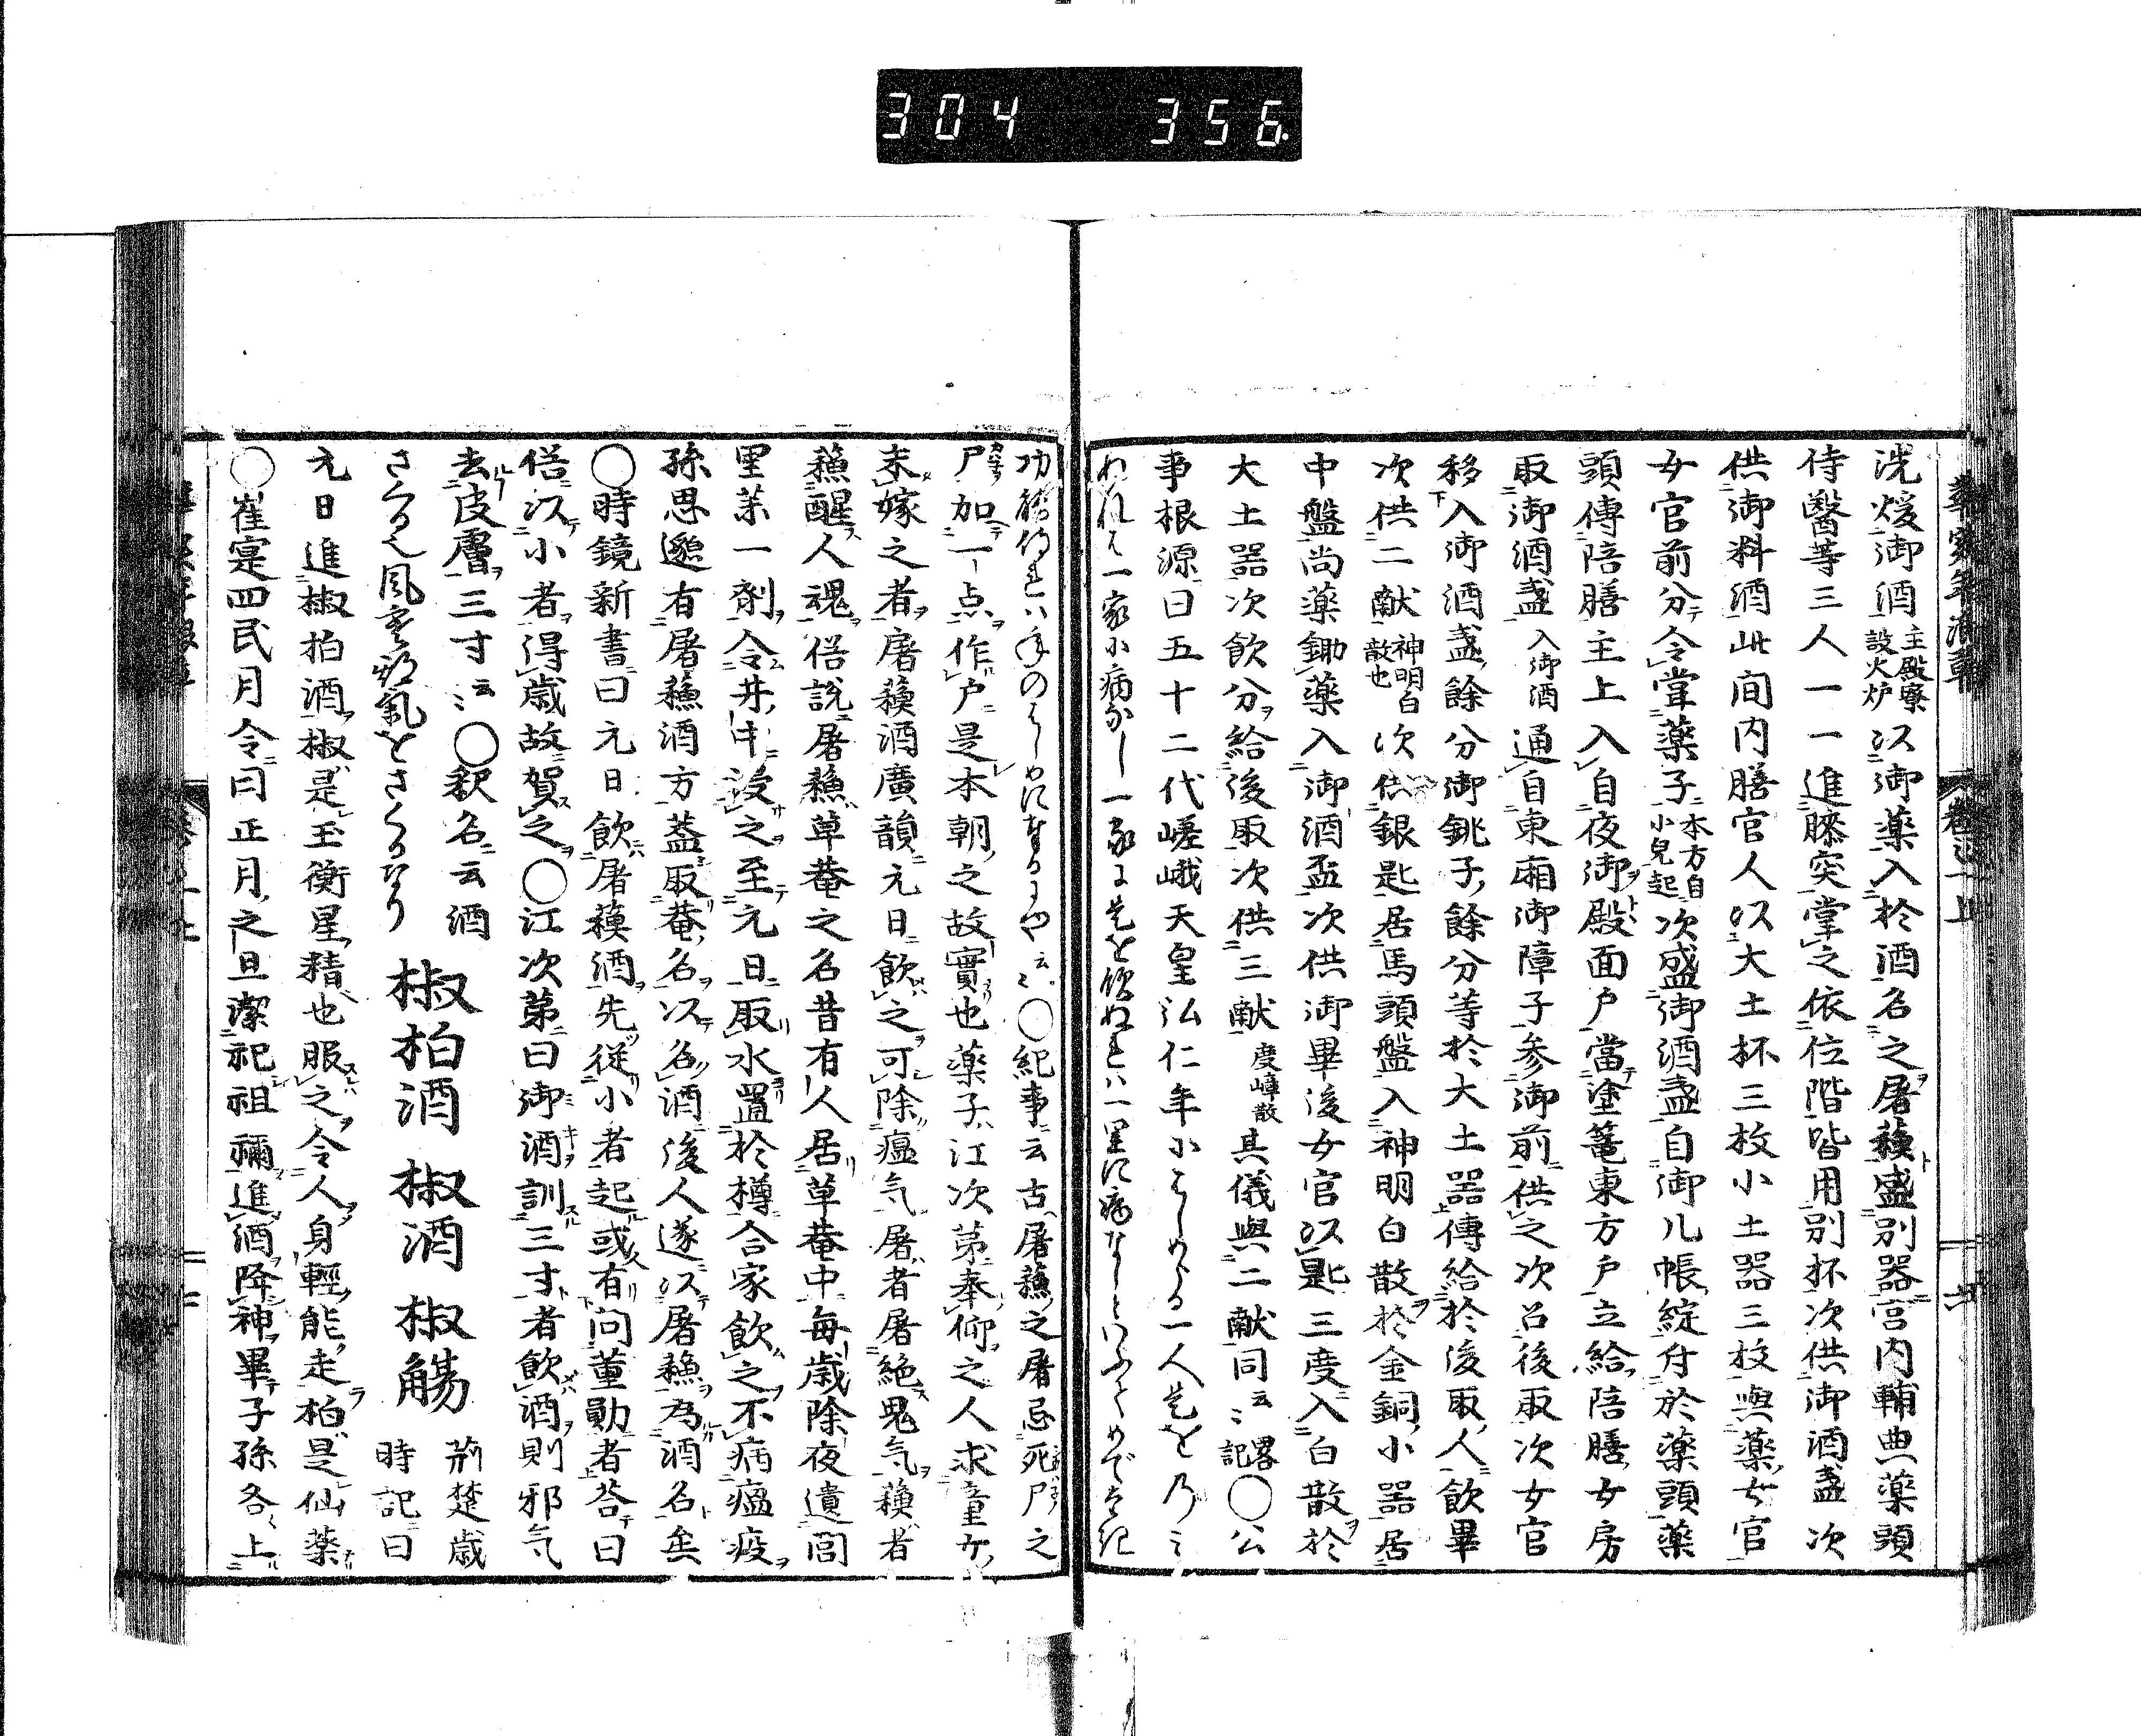 304 356.
洗煖御酒主殿寮設火炉以御薬入於酒名之屠蘓盛別器宮内輔典薬頭
侍醫等三人一一進膝突掌之依位階皆用別杯次供御酒盞次
供御料酒此間内膳官人以大土杯三枚小土器三枚與薬女官
女官前分令甞薬子本方自小兒起次盛御酒盞自御几帳綻付於薬頭薬
頭傳陪膳主上入自夜御殿面戸當塗篭東方戸立給陪膳女房
取御酒盞入御酒通自東廂御障子参御前供之次召後取次女官
移入御酒盞餘分御銚子餘分等於大土器傳給於後取人飲畢
次供二献神明白散也次供銀匙居馬頭盤入神明白散於金銅小器居
中盤尚薬鋤薬入御酒盃次供御畢後女官以匙三度入白散於
大土器次飲分給後取次供三献度嶂散其儀與二献同云〻畧記〇公
事根源曰五十二代嵯峨天皇弘仁年小はしめらる一人是を乃ミ
ぬれは一家小病なし一家に是を飲ぬれハ一里に病なしといふとめでたき
功能侍れハ年のはしめに奉るにや云〻〇紀事云古屠蘇之屠忌死尸之
尸加一点作戸是本朝之故實也薬子江次第奉仰之人求童女
未嫁之者屠蘓酒廣韻元日飲之可除瘟气屠者屠絶鬼气蘓者
蘇醒人魂俗說屠蘇草菴之名昔有人居草菴中毎歳除夜遺閭
里薬一劑令井中浸之至元日取水置於樽合家飲之不病瘟疫
孫思邈有屠蘇酒方葢取菴名以名酒後人遂以屠蘇為酒名矣
〇時鏡新書曰元日飲屠蘓酒先従小者起或有問董勛者荅曰
俗以小者得歳故賀之〇江次第曰御酒訓三寸者飲酒則邪气
去皮膚三寸云〻〇釈名云酒
さくる也風寒邪氣をさくるなり
椒柏酒 椒酒 椒觴
荊楚歳
時記曰
元日進椒柏酒椒是玉衡星精也服之令人身輕能走柏是仙薬
〇崔寔四民月令曰正月之旦潔祀祖禰進酒降神畢子孫各上